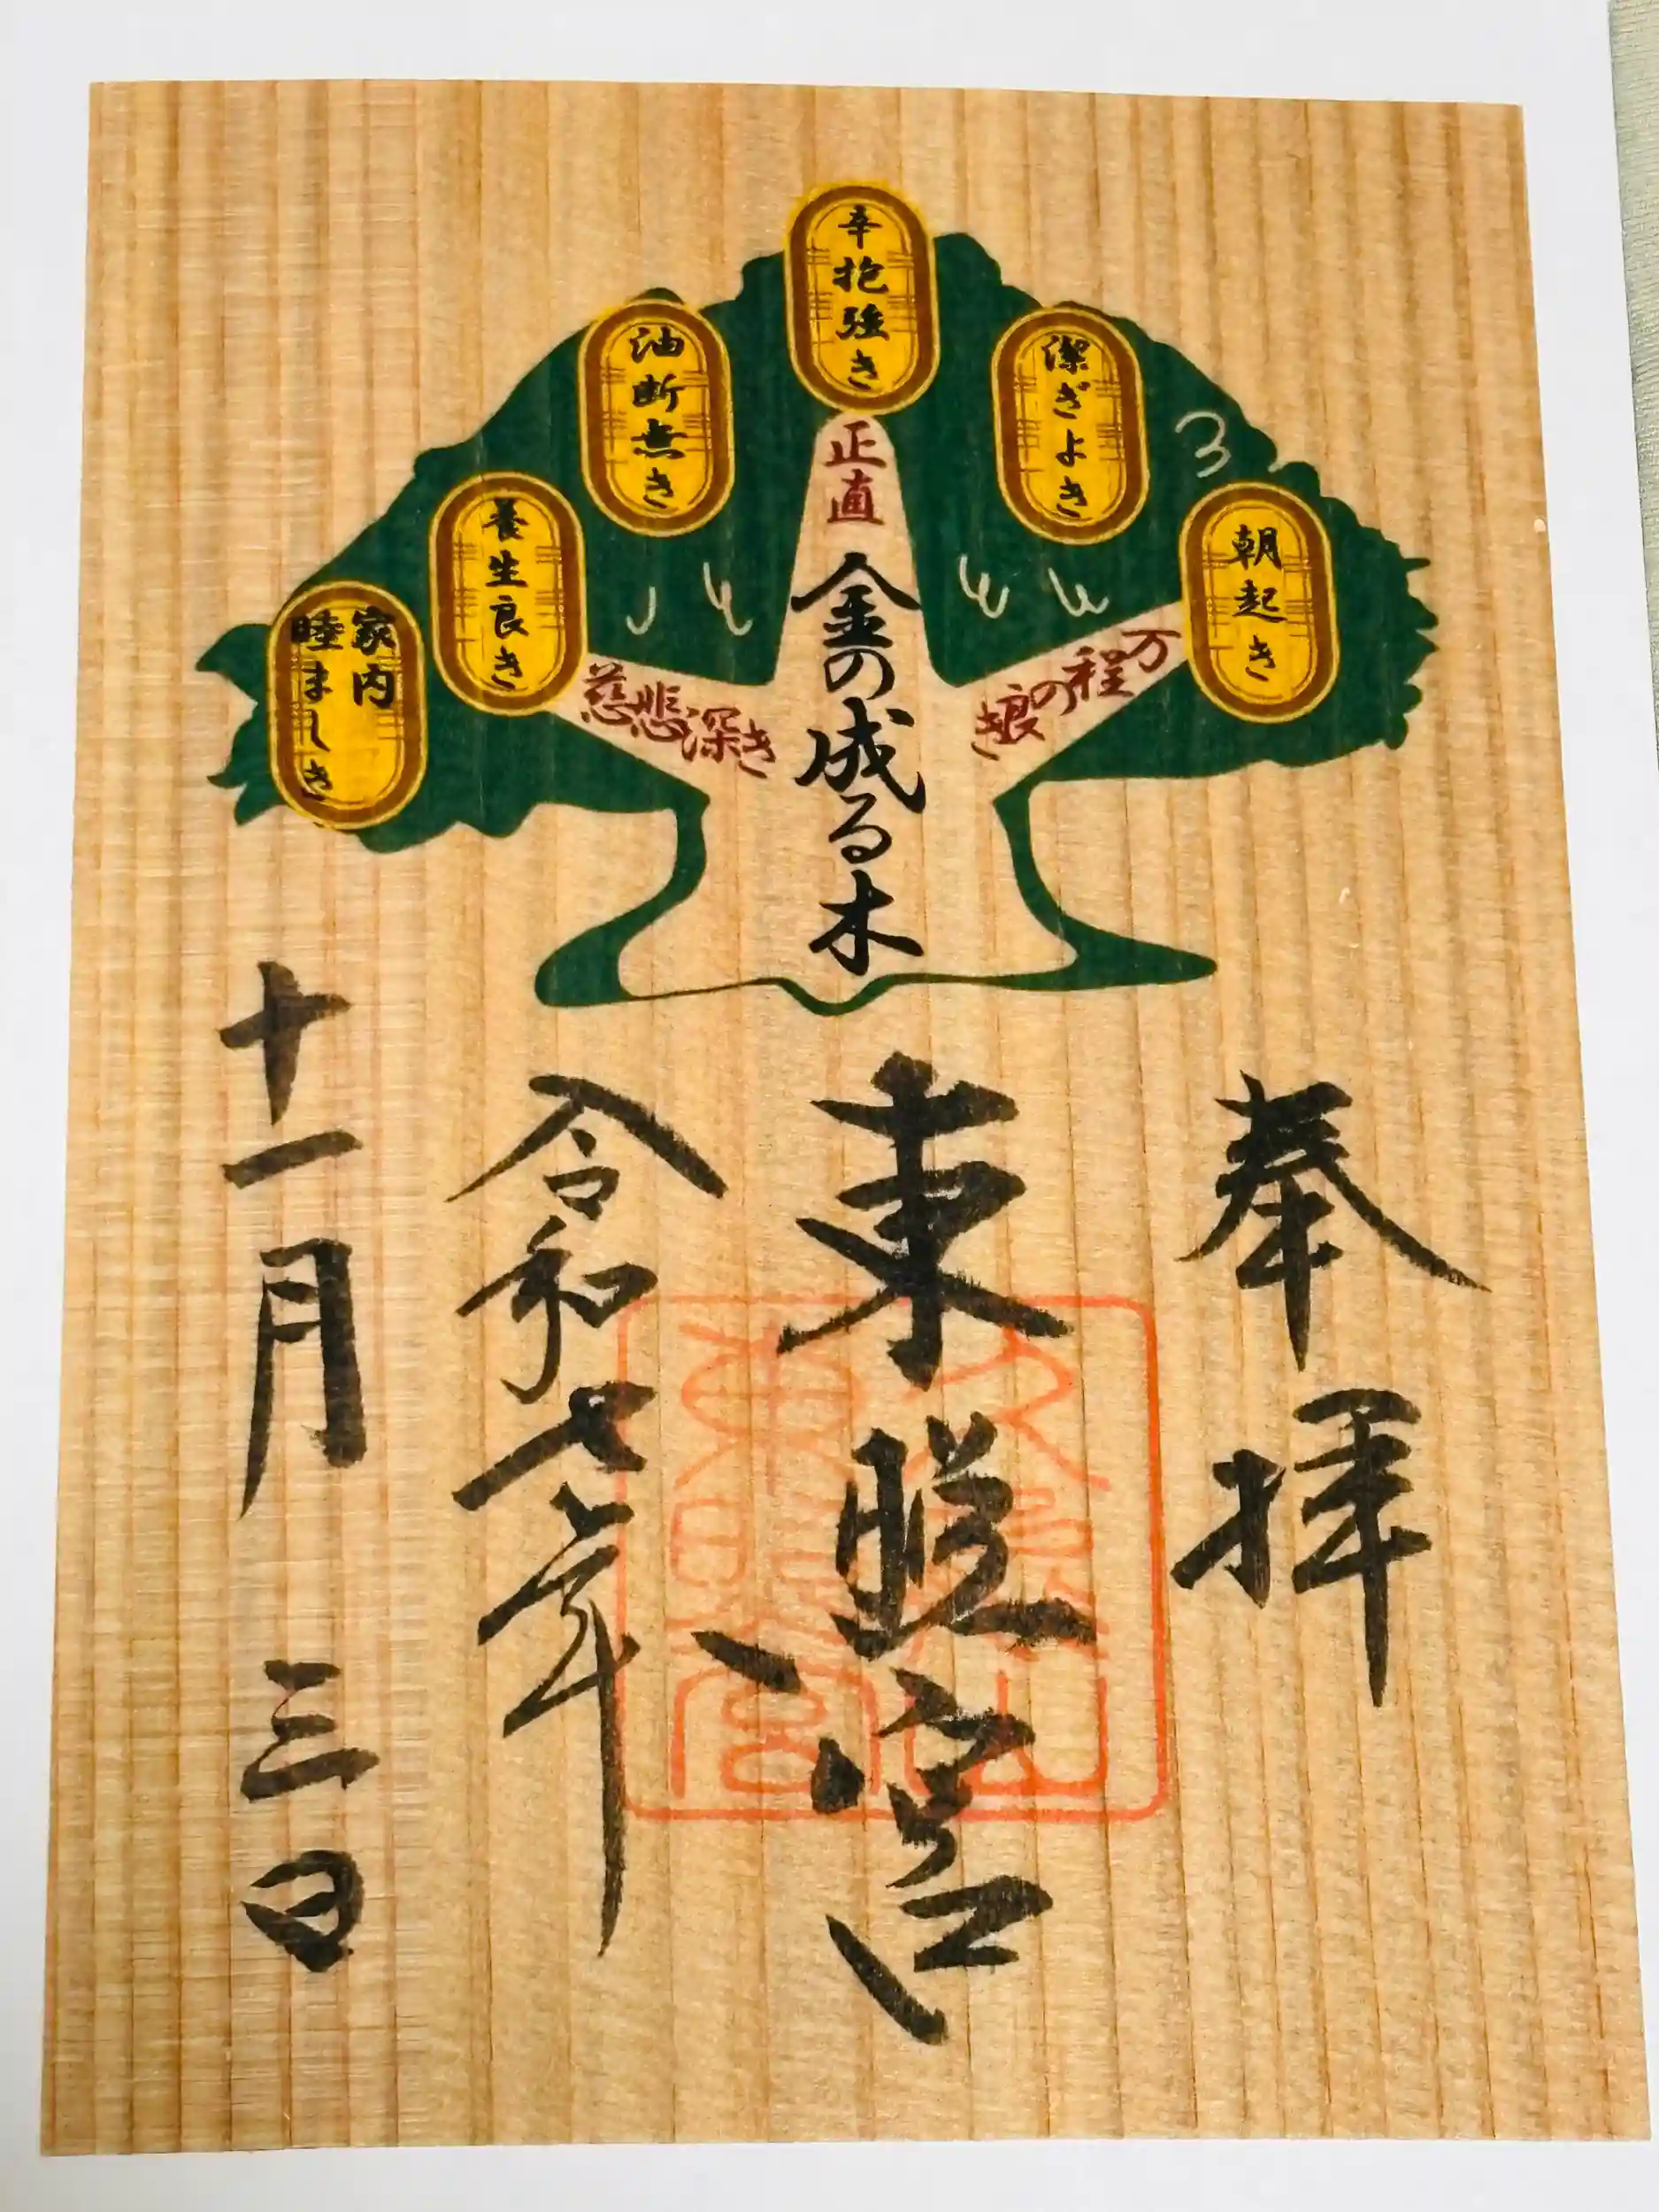 辛抱強き
潔ぎよき
朝起き
油断無き
養生良き
家内
睦ましき
正直
万程の良き
慈悲深き
金の成る木
奉拝
東照宮
令和七年
十一月三日